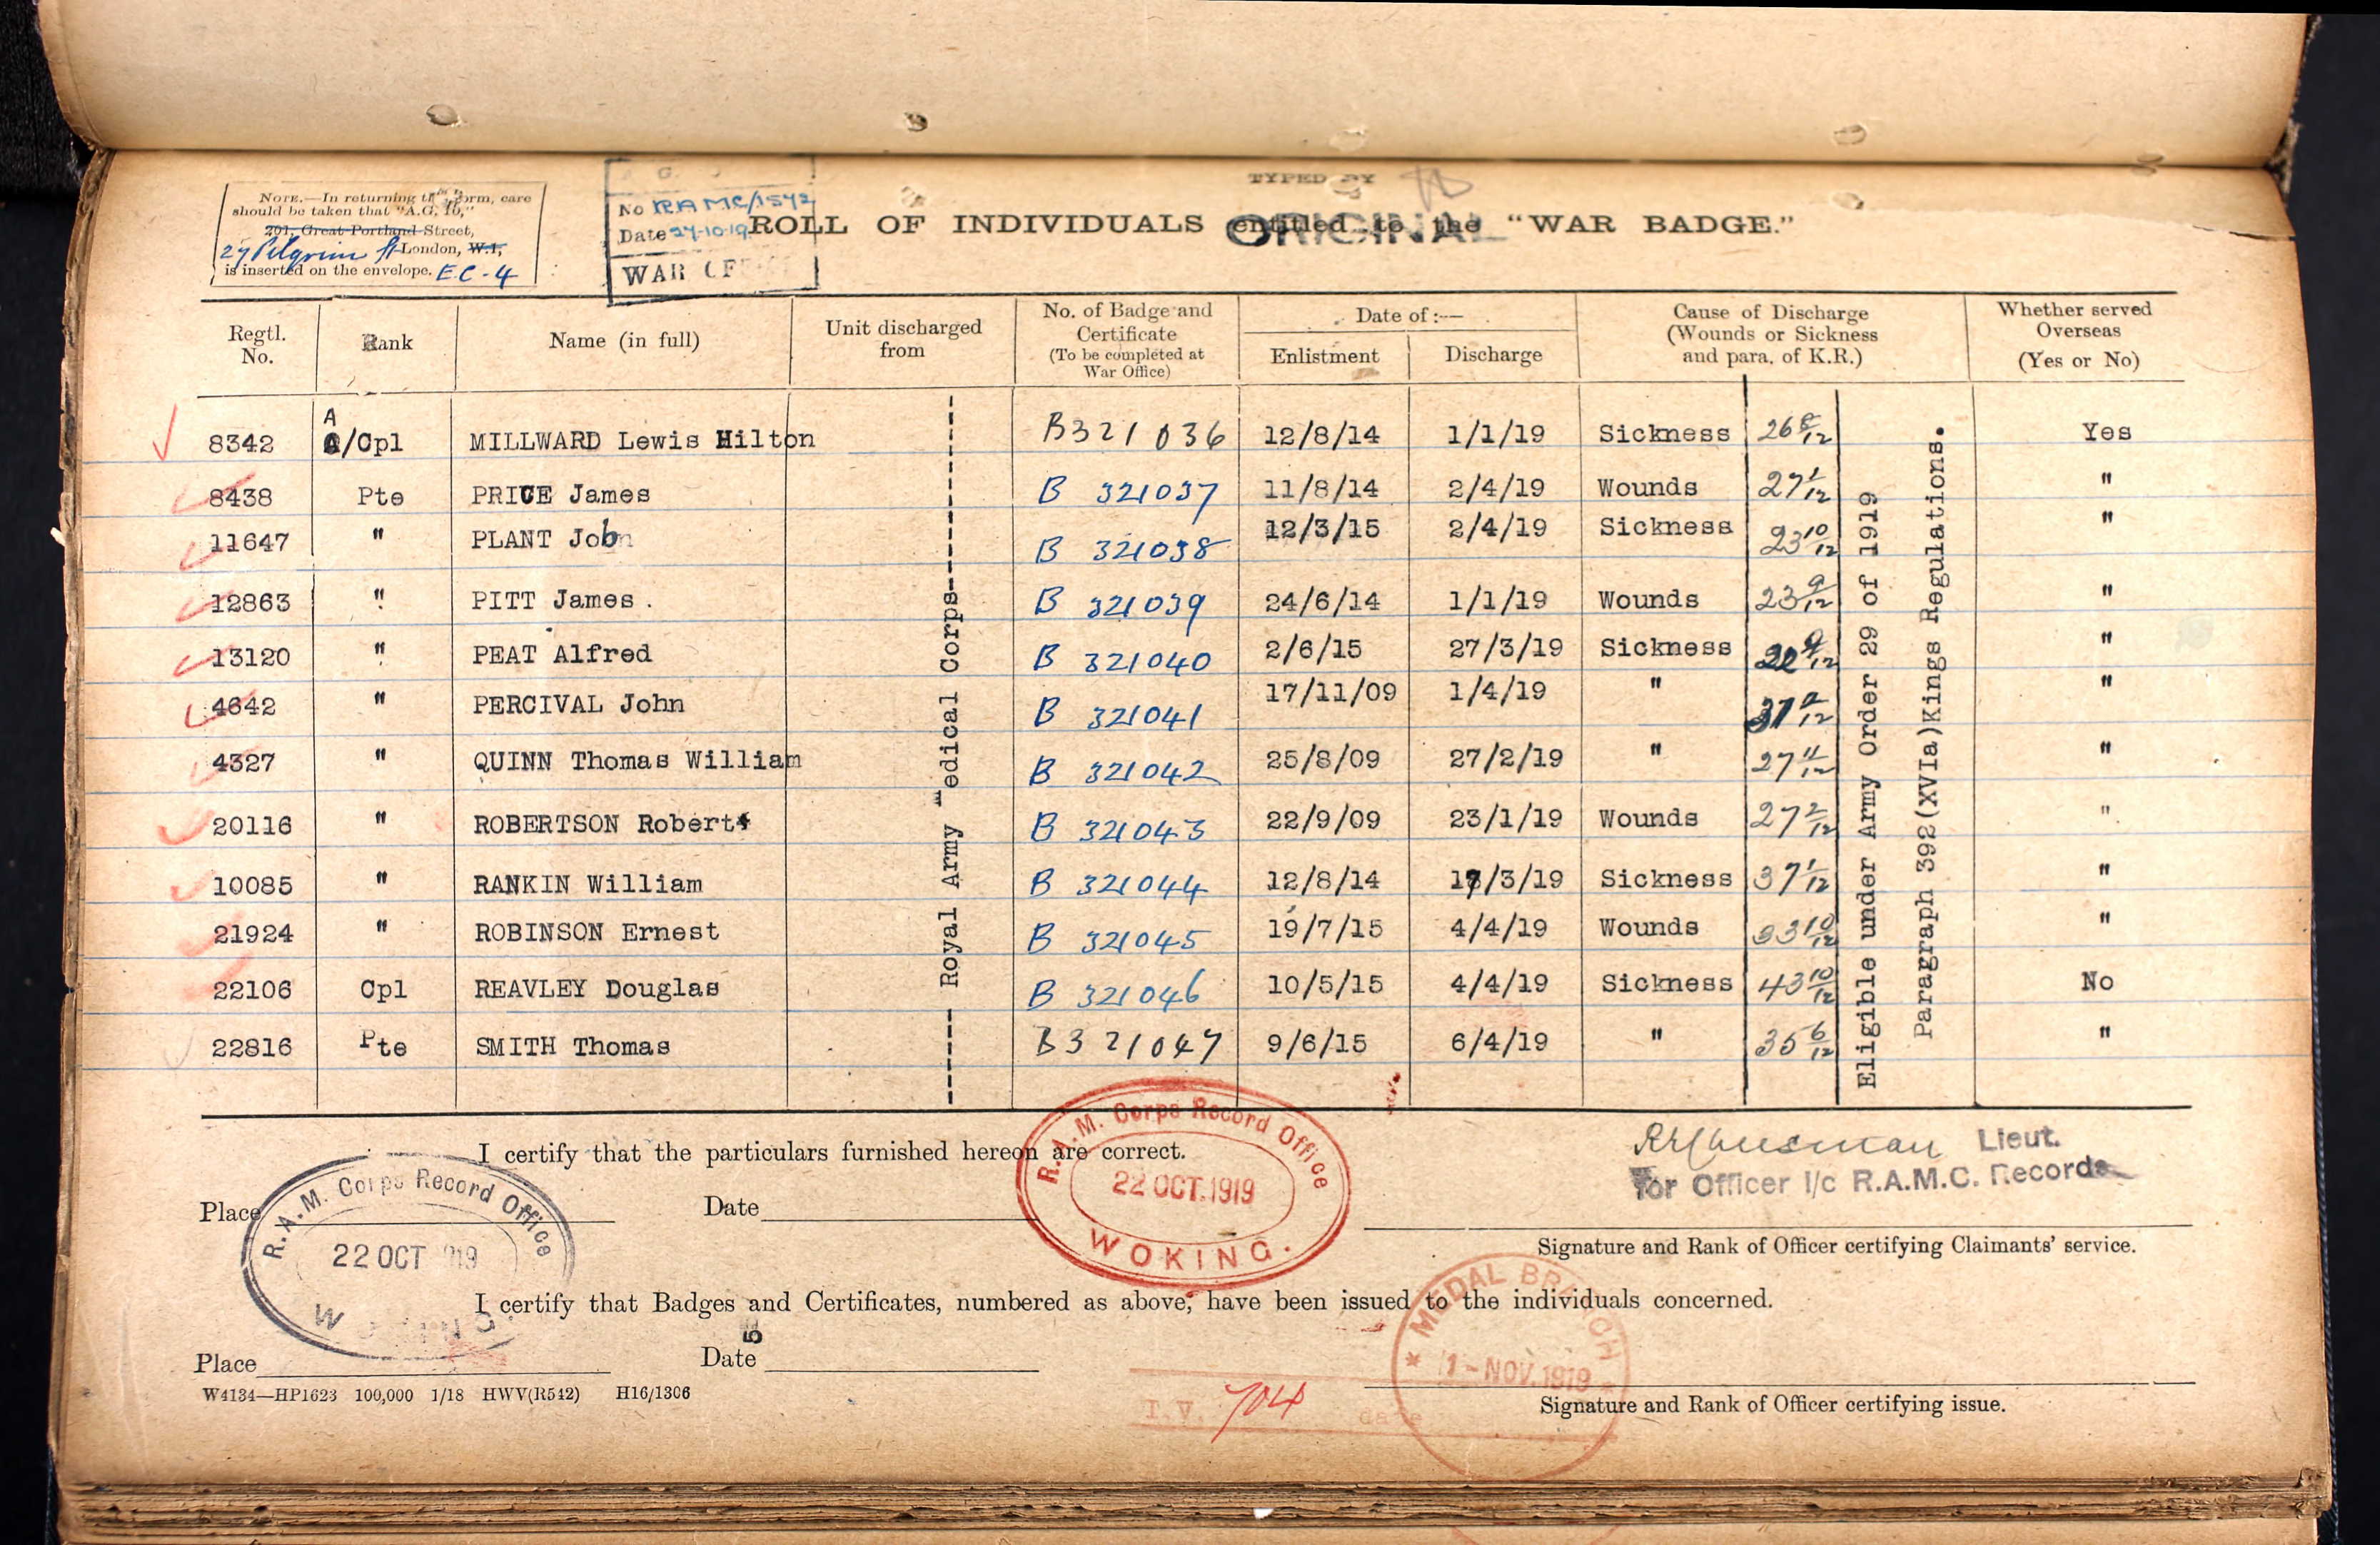 TYPED BY
NOTE.—In returning this form, care
should be taken that "A.G. 10,"
201, Great Portland Street,
27 Pilgrim St London, W.1,
is inserted on the envelope. E.C-4
No RAMC/1542
Date 27-10-19
WAR OF
ROLL OF INDIVIDUALS entitled to the "WAR BADGE."
ORIGINAL
Regtl. No. Rank Name (in full) Unit discharged from No. of Badge and Certificate (To be completed at War Office) Date of:— Enlistment Discharge Cause of Discharge (Wounds or Sickness and para. of K.R.) Whether served Overseas (Yes or No)
8342 A/Cpl MILLWARD Lewis Hilton B321036 12/8/14 1/1/19 Sickness 26 8/12 Yes
8438 Pte PRICE James B 321037 11/8/14 2/4/19 Wounds 27 1/12 "
11647 " PLANT Job B 321038 12/3/15 2/4/19 Sickness 23 10/12 "
12863 " PITT James . B 321039 24/6/14 1/1/19 Wounds 23 9/12 "
13120 " PEAT Alfred B 321040 2/6/15 27/3/19 Sickness "
4642 " PERCIVAL John B 321041 17/11/09 1/4/19 " "
4327 " QUINN Thomas William B 321042 25/8/09 27/2/19 " 27 11/12 "
20116 " ROBERTSON Robert B 321043 22/9/09 23/1/19 Wounds 27 2/12 "
10085 " RANKIN William B 321044 12/8/14 /3/19 Sickness 37 1/12 "
21924 " ROBINSON Ernest B 321045 19/7/15 4/4/19 Wounds 33 10/12 "
22106 Cpl REAVLEY Douglas B 321046 10/5/15 4/4/19 Sickness 43 10/12 No
22816 Pte SMITH Thomas B321047 9/6/15 6/4/19 " 35 6/12 "
------ Royal Army Medical Corps------
Eligible under Army Order 29 of 1919
Paragraph 392(XVIa)Kings Regulations.
I certify that the particulars furnished hereon are correct.
Lieut.
for Officer I/c R.A.M.C. Records
Place
Date
R.A.M. Corps Record Office
22 OCT.1919
WOKING.
R.A.M. Corps Record Office
22 OCT 1919
WOKING.
Signature and Rank of Officer certifying Claimants' service.
I certify that Badges and Certificates, numbered as above, have been issued to the individuals concerned.
5
Place
Date
MEDAL BRANCH
1-NOV.1919
W4134—HP1623 100,000 1/18 HWV(R542) H16/1306
I.V. 704 date
Signature and Rank of Officer certifying issue.